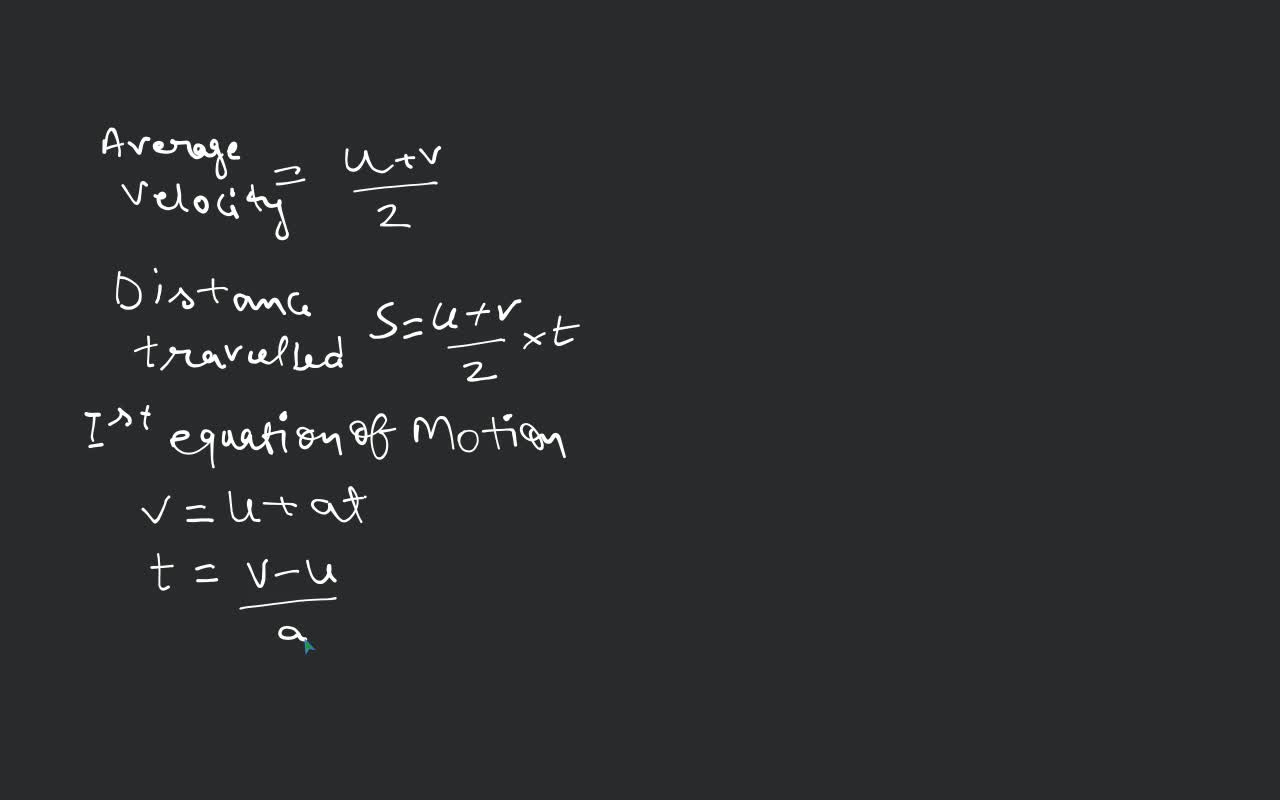 Average
Velocity = u+v/2
Distance
travelled S = u+v/2 × t
Ist equation of Motion
v = u + at
t = v-u/a